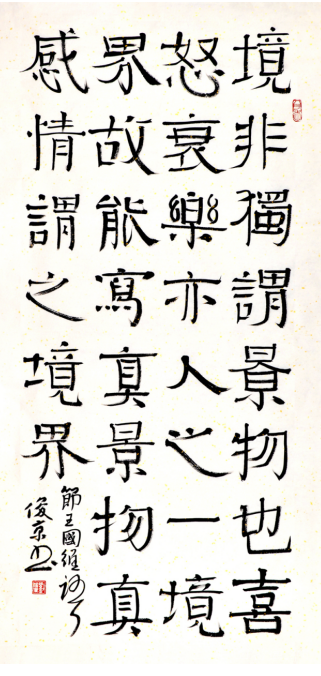 境非獨謂景物也喜
怒哀樂亦人之一境
界故能寫真景物真
感情謂之境界
節王國維
俊京书